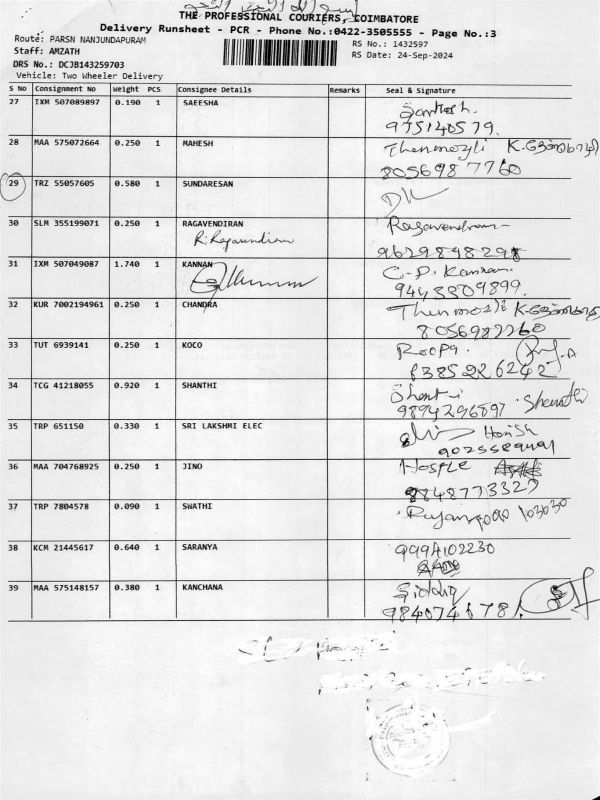 THE PROFESSIONAL COURIERS, COIMBATORE
Delivery Runsheet - PCR - Phone No.:0422-3505555 - Page No.:3
Route: PARSN NANJUNDAPURAM
RS No.: 1432597
Staff: AMZATH
RS Date: 24-Sep-2024
DRS No.: DCJB143259703
Vehicle: Two Wheeler Delivery
S No Consignment No Weight PCS Consignee Details Remarks Seal & Signature
27 IXM 507089897 0.190 1 SAEESHA Santhosh.
975140579.
28 MAA 575072664 0.250 1 MAHESH Thenmozhli
8056987760
29 TRZ 55057605 0.580 1 SUNDARESAN
30 SLM 355199071 0.250 1 RAGAVENDIRAN Ragavendran
9629898298
31 IXM 507049087 1.740 1 KANNAN C.P. Kannan
9443309899.
32 KUR 7002194961 0.250 1 CHANDRA Thenmozhli
8056987760
33 TUT 6939141 0.250 1 KOCO Roopa.
6385226242
34 TCG 41218055 0.920 1 SHANTHI Shanti
9894296897 Shanthi
35 TRP 651150 0.330 1 SRI LAKSHMI ELEC Harish
36 MAA 704768925 0.250 1 JINO
9848773327
37 TRP 7804578 0.090 1 SWATHI
38 KCM 21445617 0.640 1 SARANYA 9994102230
39 MAA 575148157 0.380 1 KANCHANA Siddiq